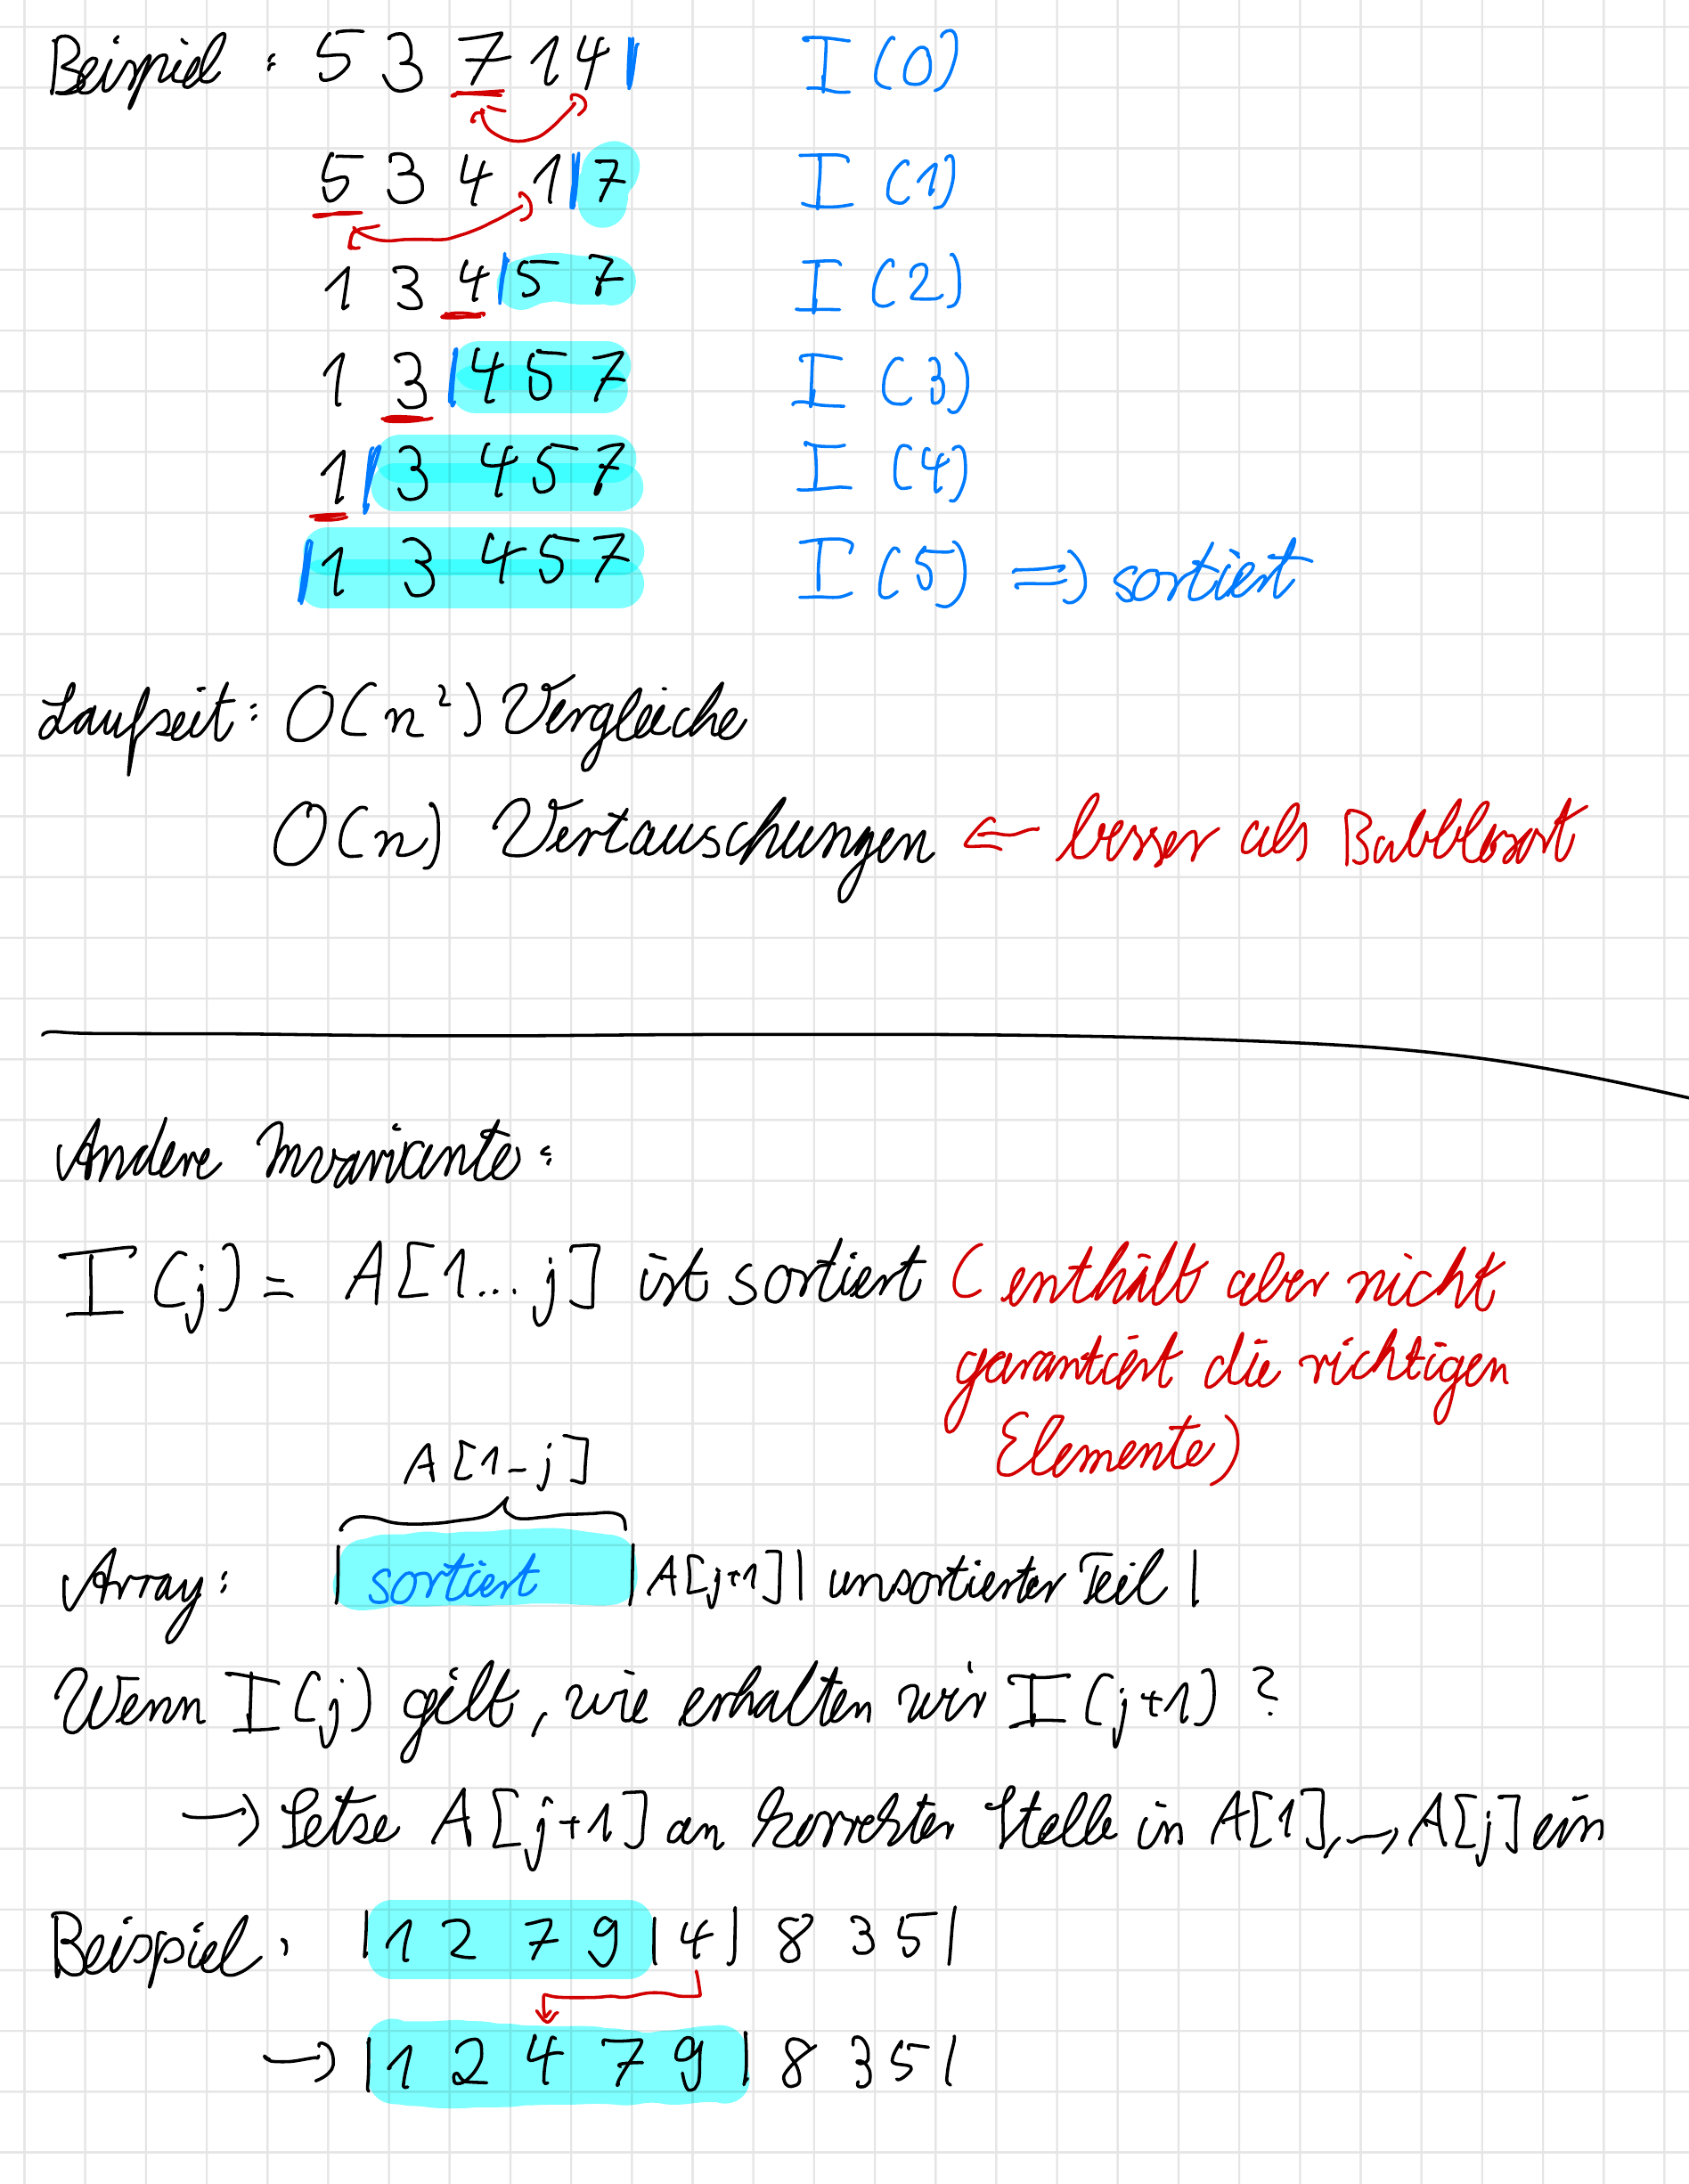 Beispiel: 5 3 7 1 4 | I(0)
5 3 4 1 | 7 I(1)
1 3 4 | 5 7 I(2)
1 3 | 4 5 7 I(3)
1 | 3 4 5 7 I(4)
| 1 3 4 5 7 I(5) => sortiert
Laufzeit: O(n²) Vergleiche
O(n) Vertauschungen ← besser als Bubblesort
Andere Invariante:
I(j) = A[1...j] ist sortiert (enthält aber nicht
garantiert die richtigen
Elemente)
A[1-j]
Array: | sortiert | A[j+1] | unsortierter Teil |
Wenn I(j) gilt, wie erhalten wir I(j+1)?
→ Setze A[j+1] an korrekter Stelle in A[1],–, A[j] ein
Beispiel: | 1 2 7 9 | 4 | 8 3 5 |
→ | 1 2 4 7 9 | 8 3 5 |